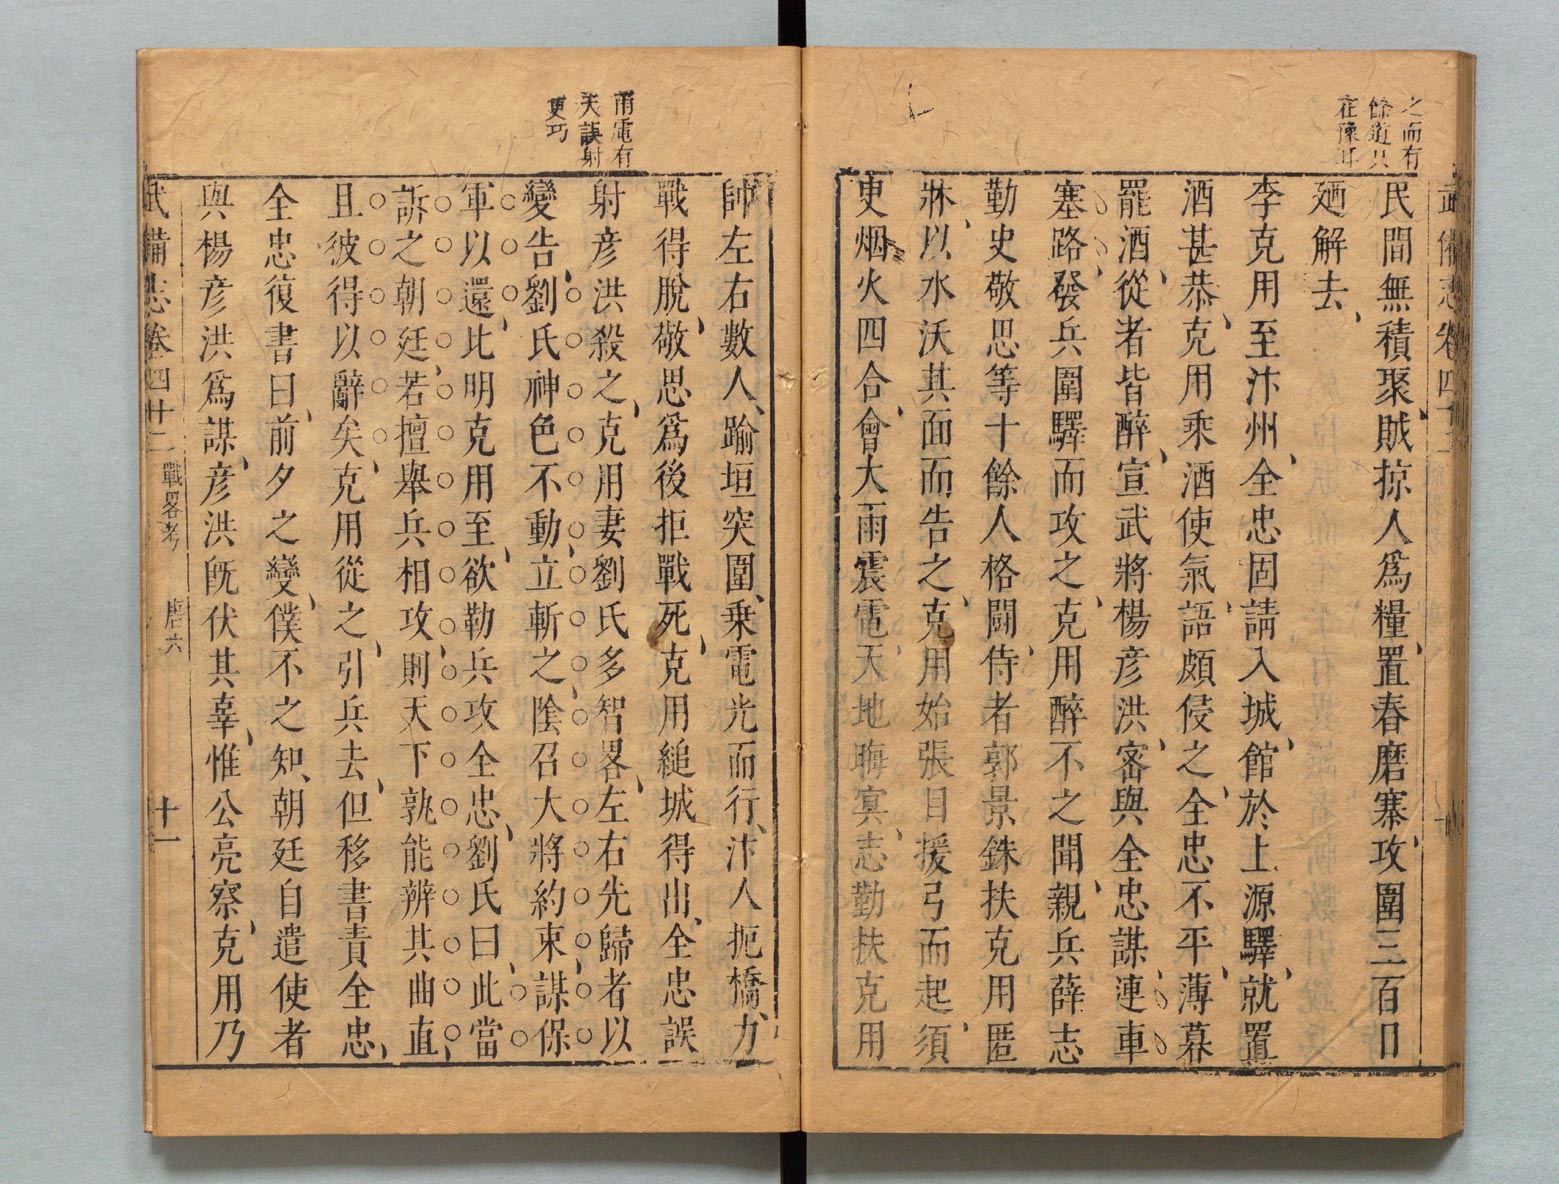 之而有
餘道只
在豫耳
民間無積聚賊掠人爲糧置舂磨寨攻圍三百日
廼解去
李克用至汴州全忠固請入城館於上源驛就置
酒甚恭克用乘酒使氣語頗侵之全忠不平薄暮
罷酒從者皆醉宣武將楊彦洪密與全忠謀連車
塞路發兵圍驛而攻之克用醉不之聞親兵薛志
勤史敬思等十餘人格鬪侍者郭景銖扶克用匿
牀以水沃其面而告之克用始張目援弓而起須
更烟火四合會大雨震電天地晦冥志勤扶克用
雨電有
天誤射
更巧
帥左右數人踰垣突圍乗電光而行汴人扼橋力
戰得脫敬思爲後拒戰死克用縋城得出全忠誤
射彦洪殺之克用妻劉氏多智畧左右先歸者以
變告劉氏神色不動立斬之陰召大將約束謀保
軍以還比明克用至欲勒兵攻全忠劉氏曰此當
訴之朝廷若擅舉兵相攻則天下孰能辨其曲直
且彼得以辭矣克用從之引兵去但移書責全忠
全忠復書曰前夕之變僕不之知朝廷自遣使者
與楊彦洪爲謀彦洪旣伏其辜惟公亮察克用乃
武備志卷四十二 戰畧考 唐六 十一